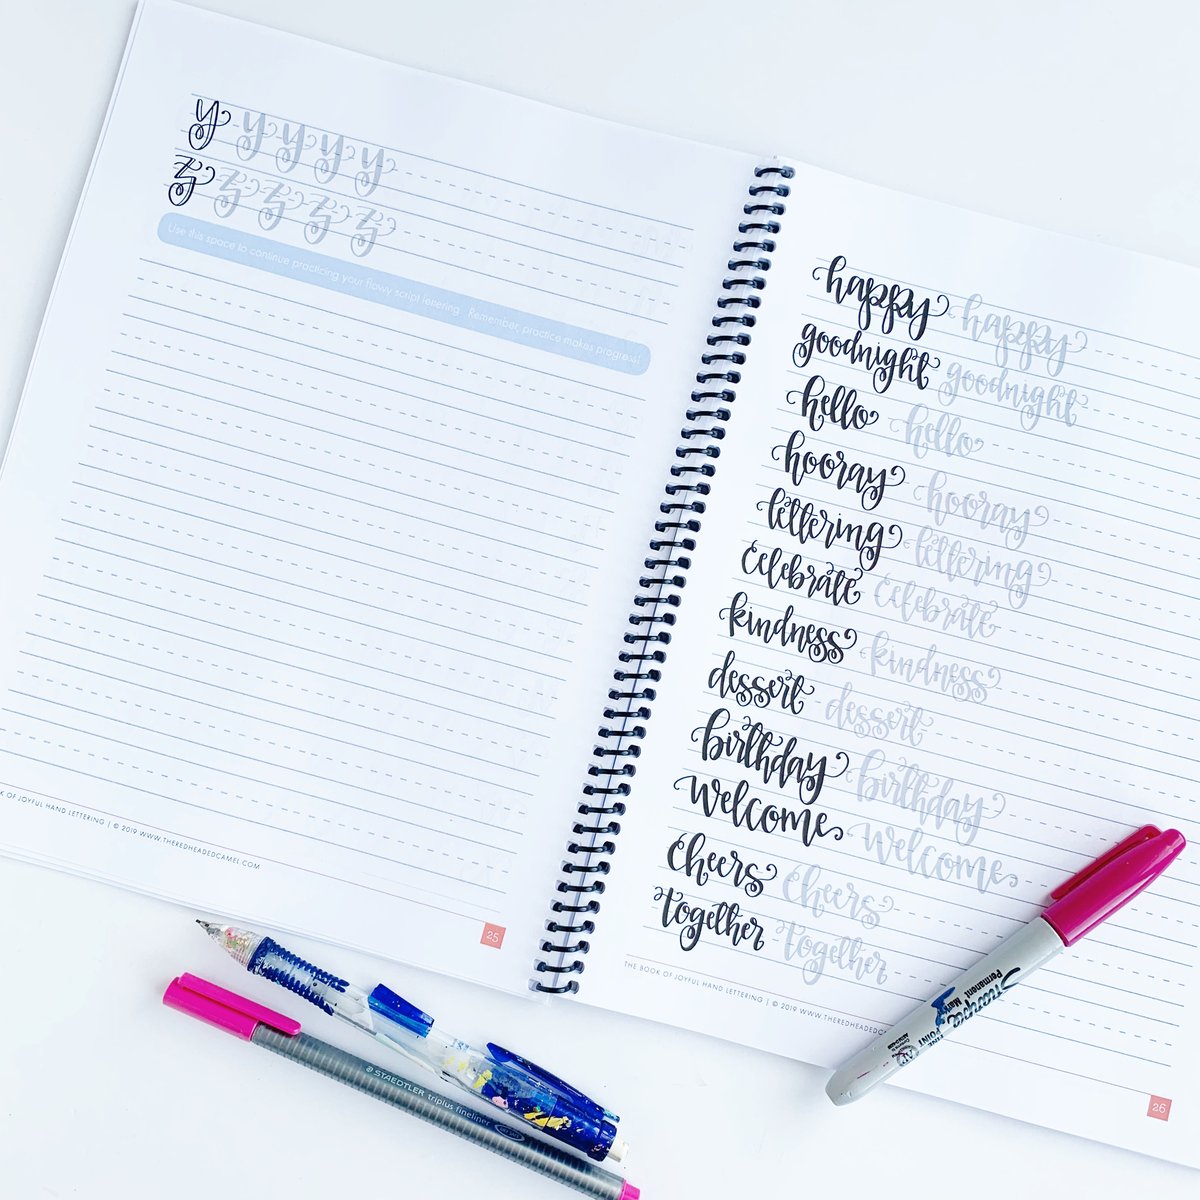 y y y y y
z z z z z
Use this space to continue practicing your flowy script lettering. Remember, practice makes progress!
OF JOYFUL HAND LETTERING | © 2019 WWW.THEREDHEADEDCAMEL.COM
25
happy happy
goodnight goodnight
hello hello
hooray hooray
lettering lettering
celebrate celebrate
kindness kindness
dessert dessert
birthday birthday
welcome welcome
cheers cheers
together together
THE BOOK OF JOYFUL HAND LETTERING | © 2019 WWW.THEREDHEADEDCAMEL
26
Sharpie
Permanent Marker
FINE POINT
STAEDTLER triplus fineliner